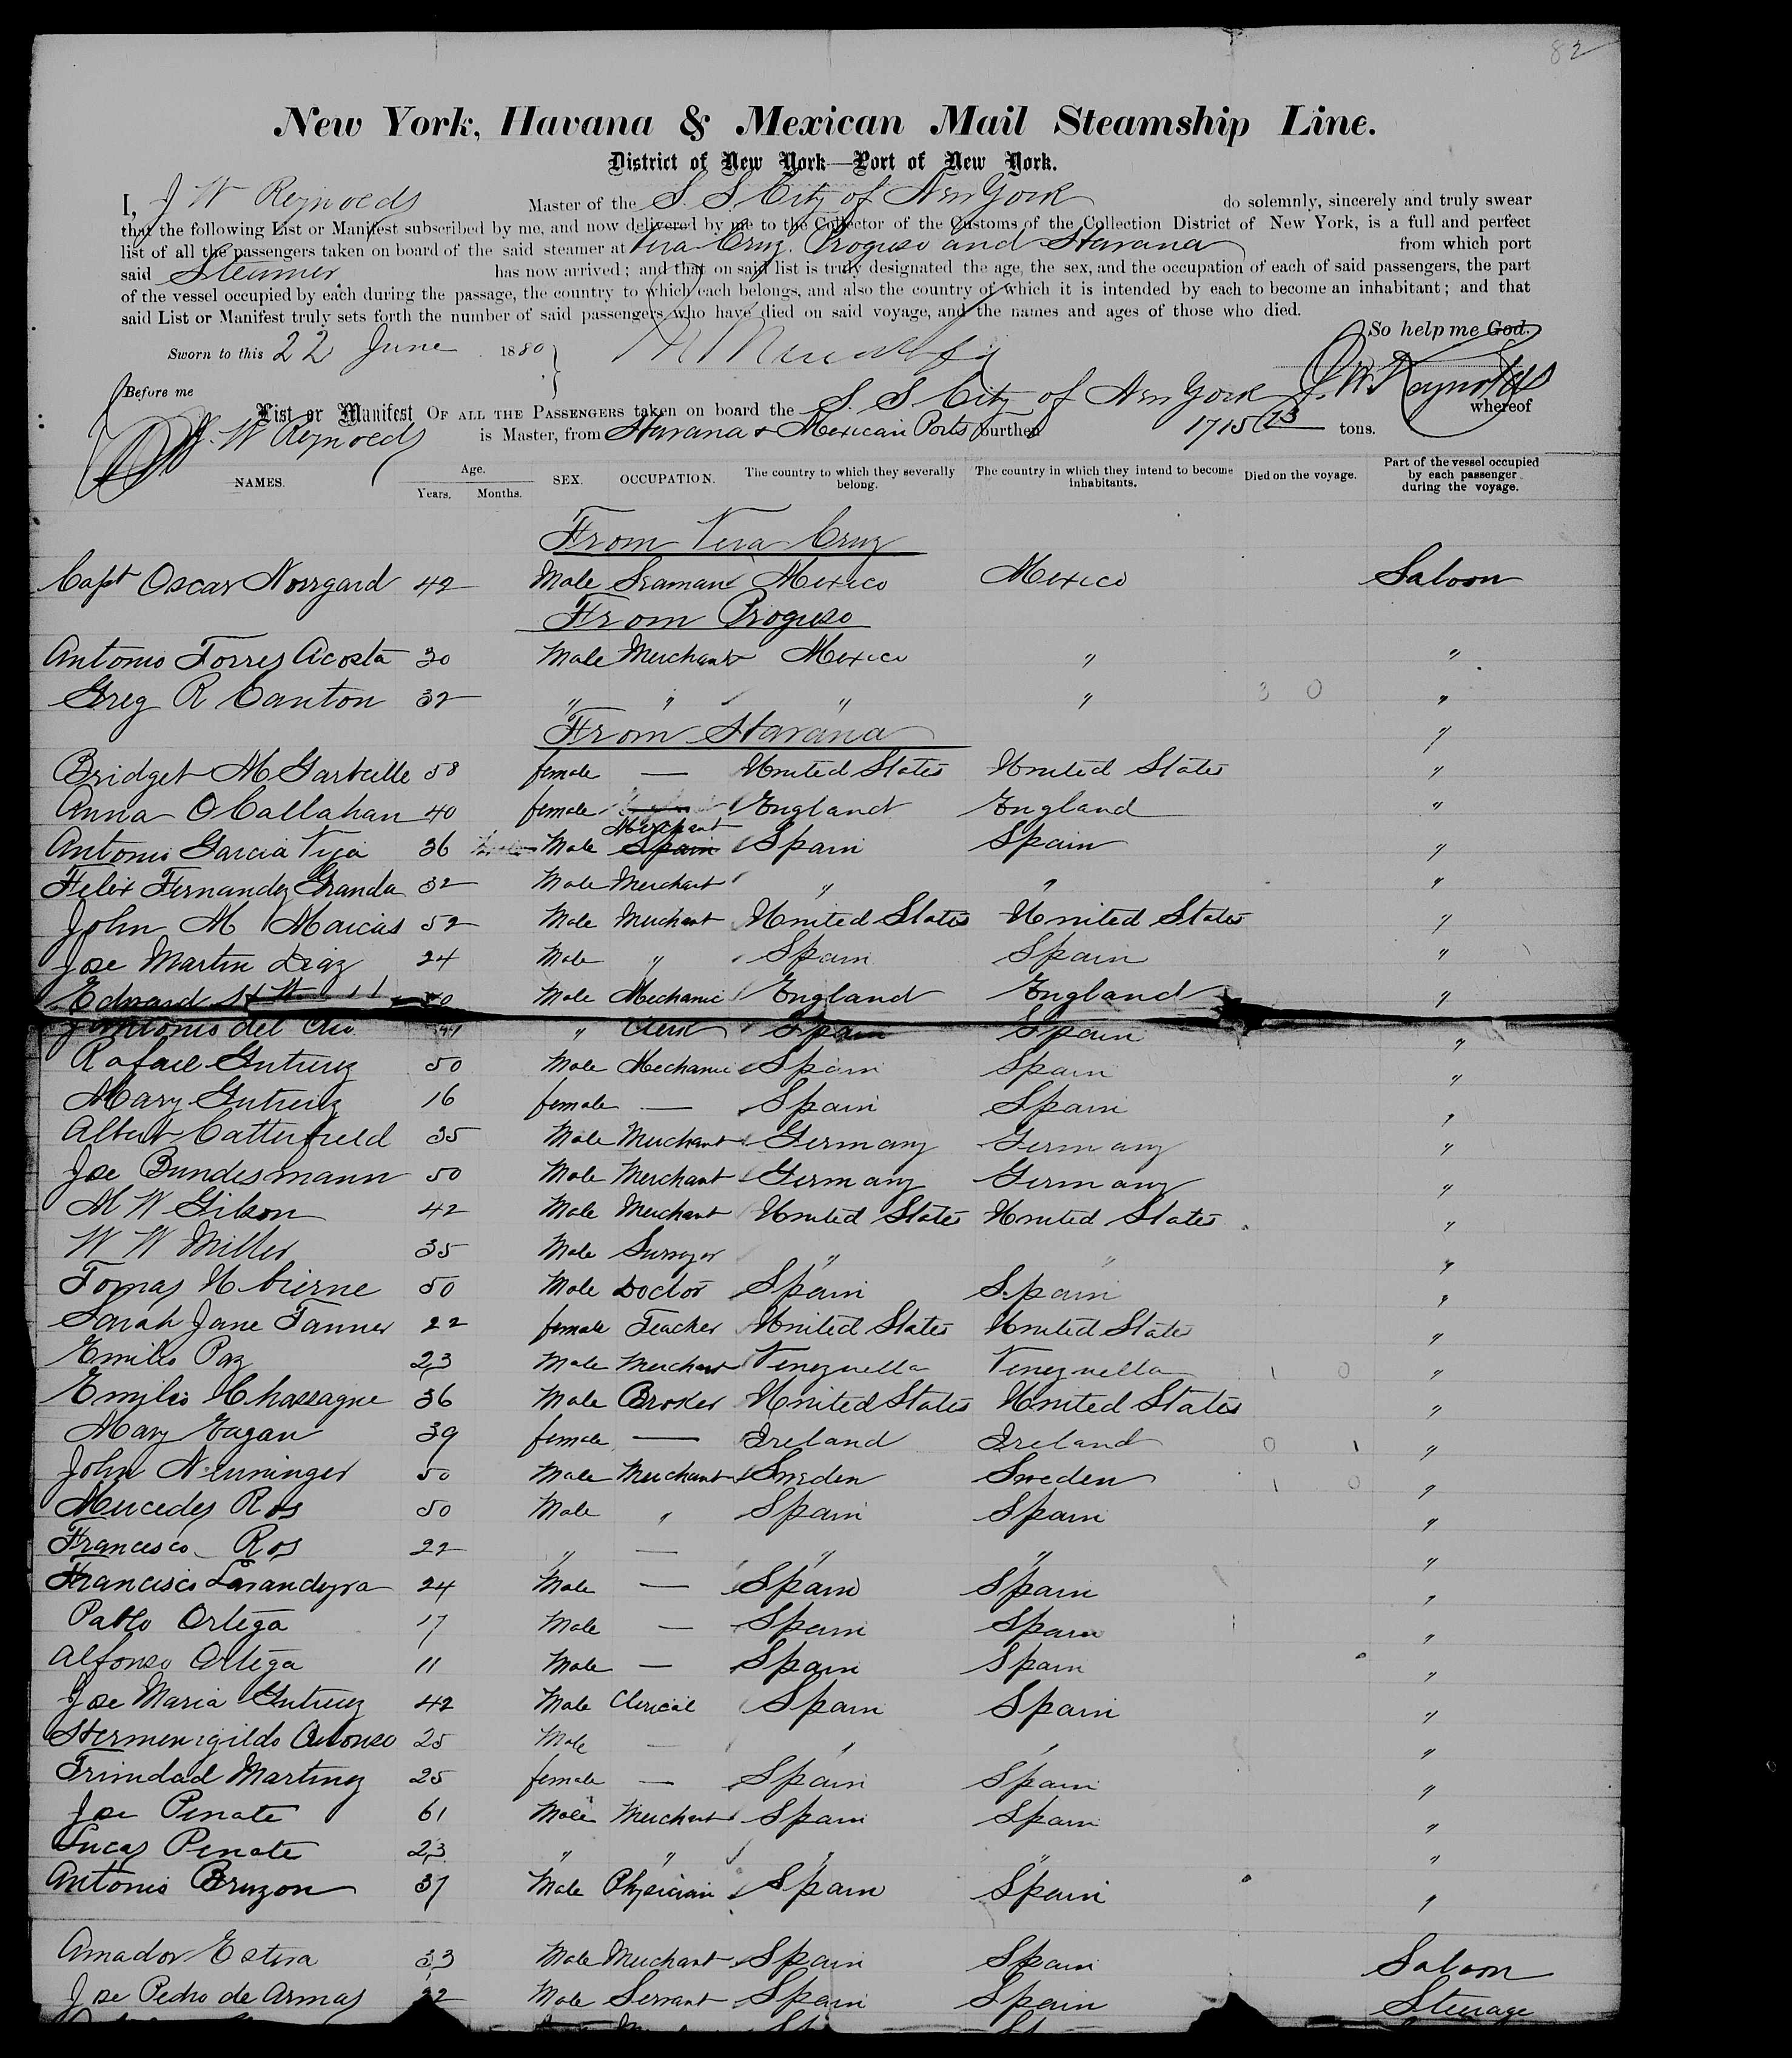 82
New York, Havana & Mexican Mail Steamship Line.
District of New York—Port of New York.
I, J W Reynolds Master of the S. S City of New York do solemnly, sincerely and truly swear
that the following List or Manifest subscribed by me, and now delivered by me to the Collector of the Customs of the Collection District of New York, is a full and perfect
list of all the passengers taken on board of the said steamer at Vera Cruz. Proguso and Havana from which port
said Steamer. has now arrived; and that on said list is truly designated the age, the sex, and the occupation of each of said passengers, the part
of the vessel occupied by each during the passage, the country to which each belongs, and also the country of which it is intended by each to become an inhabitant; and that
said List or Manifest truly sets forth the number of said passengers who have died on said voyage, and the names and ages of those who died.
So help me God.
Sworn to this 22 June 1880
Before me J. W. Reynolds
List or Manifest OF ALL THE PASSENGERS taken on board the S. S City of New York whereof
J. W Reynolds is Master, from Havana & Mexican Ports burthen 1715 tons.
NAMES. Age. Years. Months. SEX. OCCUPATION. The country to which they severally belong. The country in which they intend to become inhabitants. Died on the voyage. Part of the vessel occupied by each passenger during the voyage.
From Vera Cruz
Capt Oscar Norrgard 42 Male Seaman Mexico Mexico Saloon
From Proguso
Antonio Torres Acosta 30 Male Merchant Mexico " "
Greg R Canton 32 " " " " 3 0 "
From Havana "
Bridget 58 female — United States United States "
Anna O Callahan 40 female England England "
Antonio Garcia Vega 36 Male Merchant Spain Spain Spain "
Felix Fernandez Granda 32 Male Merchant " " "
John M Marcias 52 Male Merchant United States United States "
Jose Martin Diaz 24 Male " Spain Spain "
Edward Male Mechanic England England "
Antonio del Clerk Spain Spain "
Rafael Gutierrez 50 Male Mechanic Spain Spain "
Mary Gutierrez 16 female — Spain Spain "
Albert Catterfield 35 Male Merchant Germany Germany "
Jose Bundesmann 50 Male Merchant Germany Germany "
M W Gibson 42 Male Merchant United States United States "
W W Miller 35 Male Surveyor " " "
Tomas H 50 Male Doctor Spain Spain "
Sarah Jane Tanner 22 female Teacher United States United States "
Emilio Paz 23 Male Merchant Venezuella Venezuella 1 0 "
Emilio Chassagne 36 Male Broker United States United States "
Mary Eagan 39 female — Ireland Ireland 0 1 "
John Neuninger 50 Male Merchant Sweden Sweden 1 0 "
Mercedes Ros 50 Male " Spain Spain "
Francisco Ros 22 " — " " "
Francisco 24 Male — Spain Spain "
Pablo Ortega 17 Male — Spain Spain "
Alfonso Ortega 11 Male — Spain Spain "
Jose Maria Gutierrez 42 Male Clerical Spain Spain "
Hermenigildo Alonso 25 Male — " " "
Trinidad Martinez 25 female — Spain Spain "
Jose Penate 61 Male Merchant Spain Spain "
Lucas Penate 23 " " " " "
Antonio Bruzon 37 Male Physician Spain Spain "
Amador Esteva 33 Male Merchant Spain Spain Saloon
Jose Pedro de Armas 22 Male Servant Spain Spain Steerage